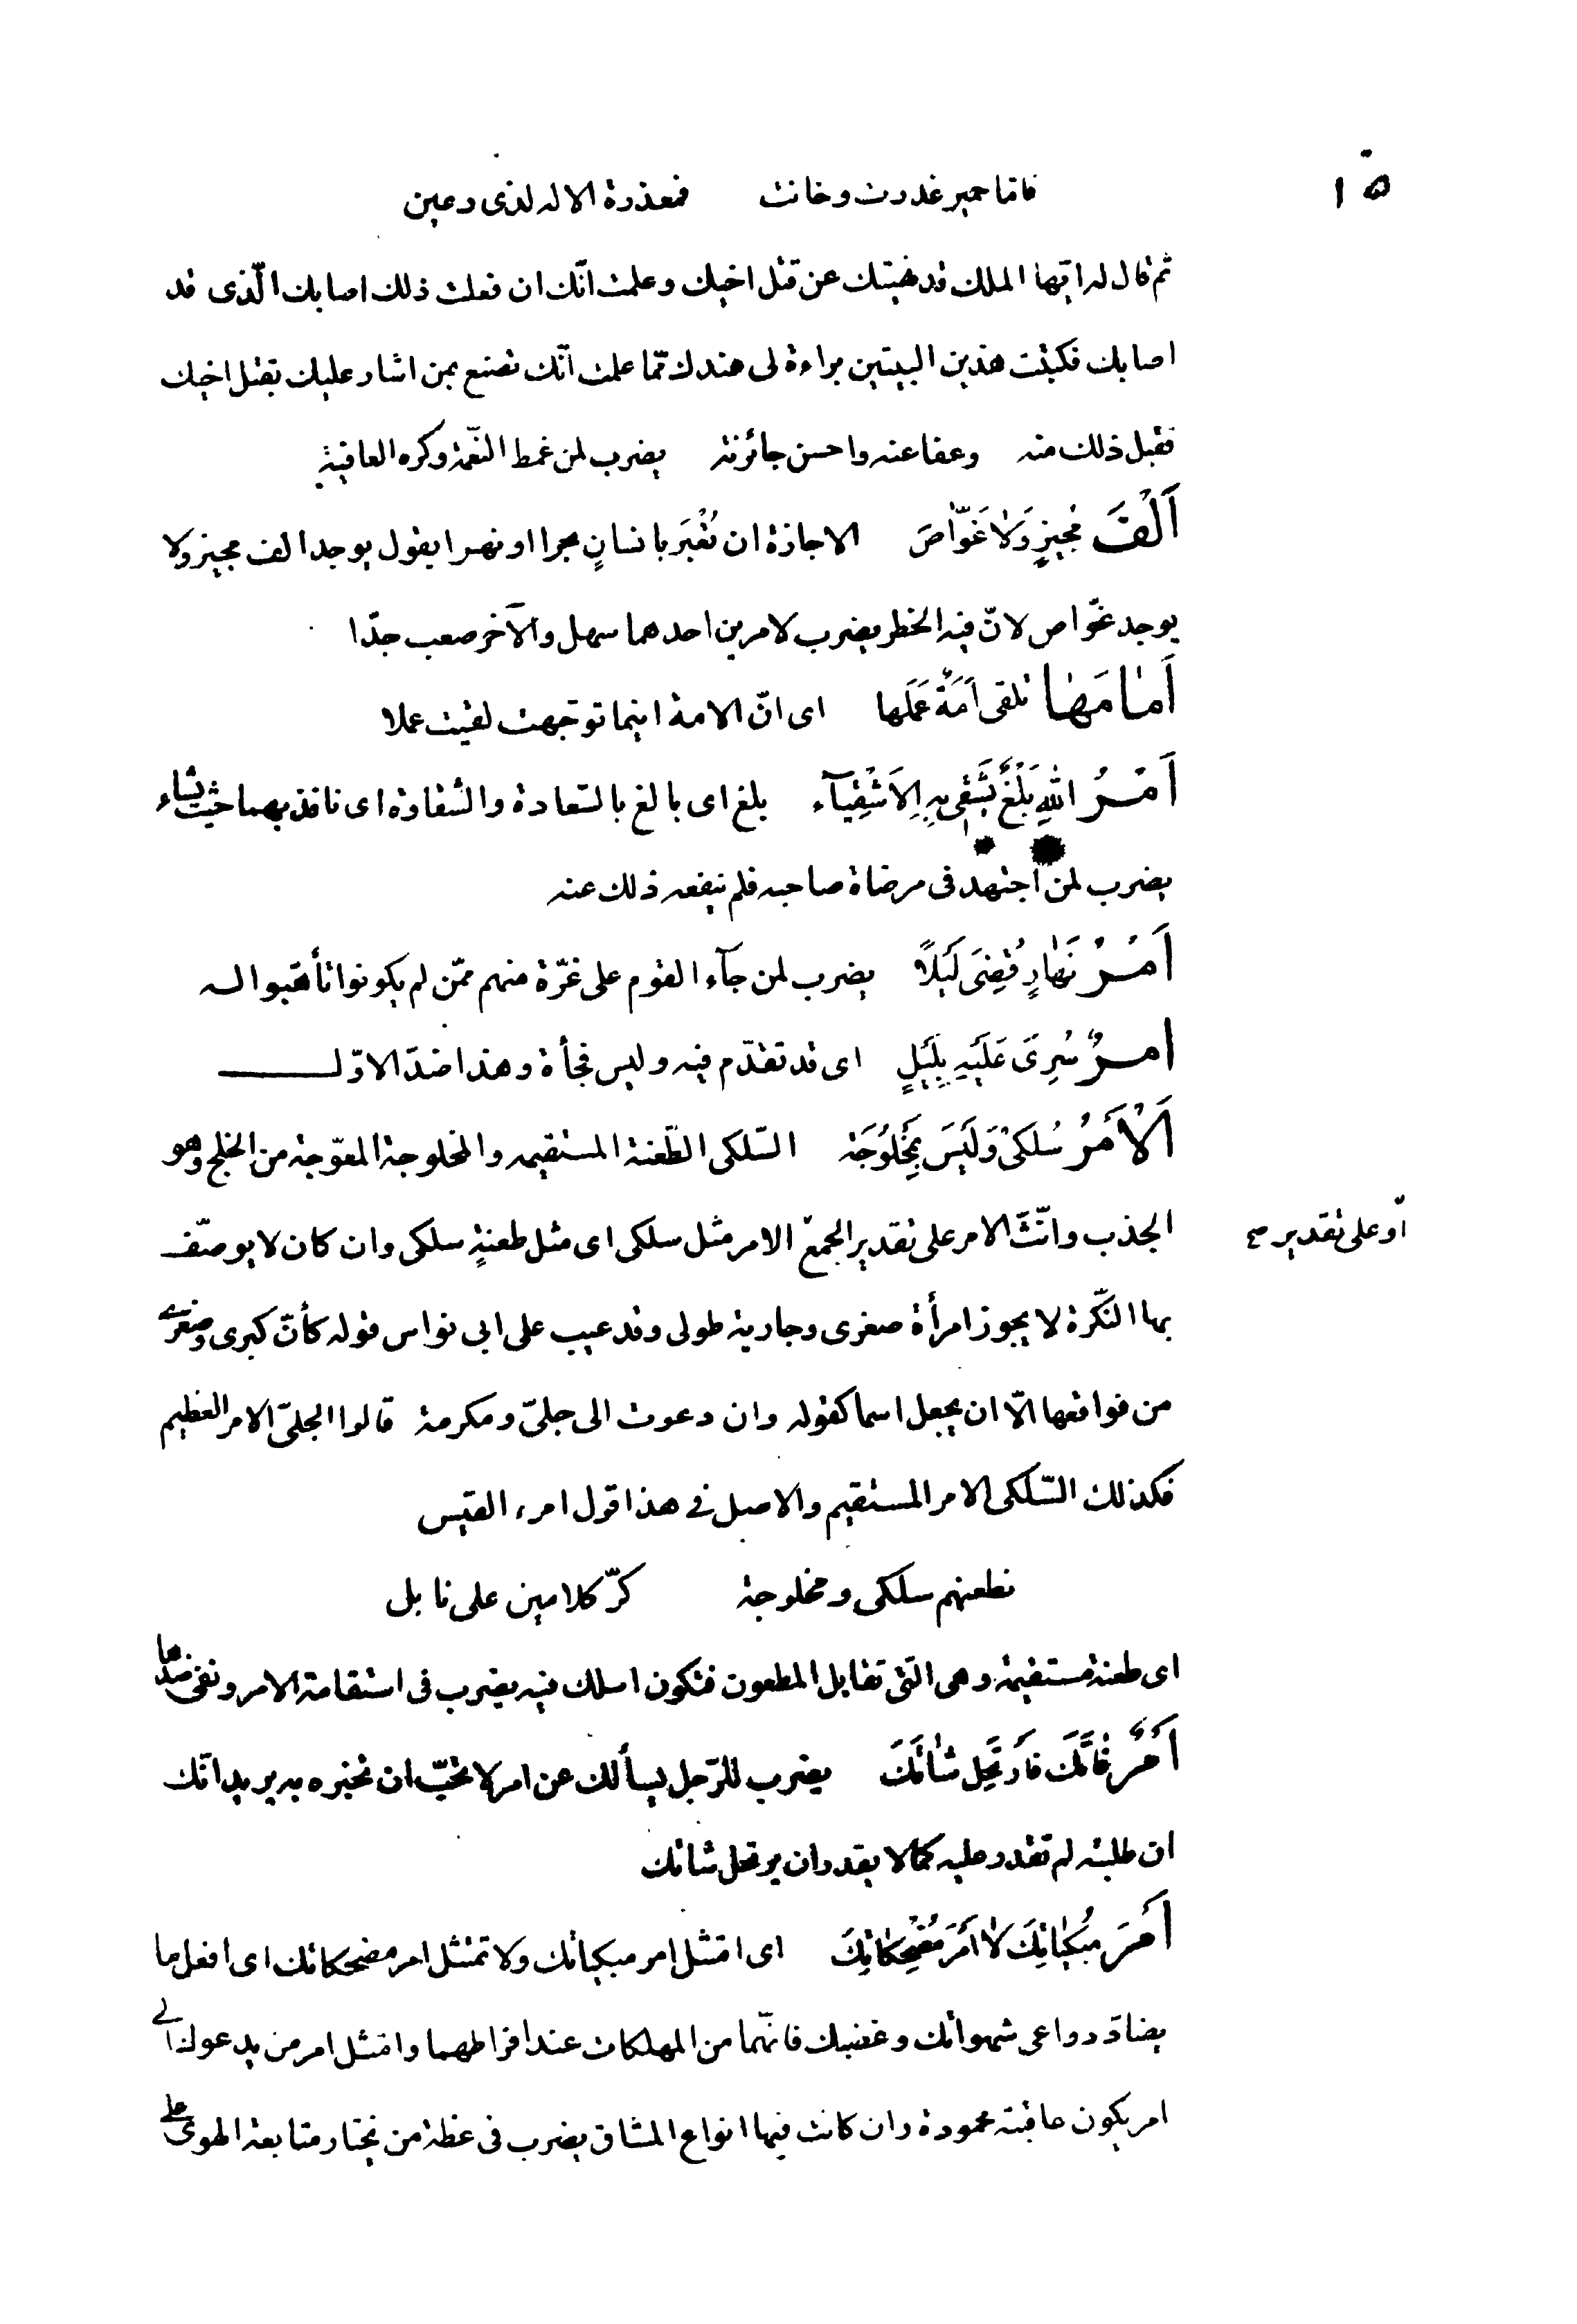 ١٥
فامّا حمير غدرت وخانت فمعذرة الاله لذى رعين
ثم قال له ايّها الملك قد نهيتك عن قتل اخيك وعلمت انّك ان فعلت ذلك اصابك الّذى قد
اصابك فكتبت هذين البيتين براءة لى عندك ممّا علمت انّك تصنع بمن اشار عليك بقتل اخيك
فقبل ذلك منه وعفا عنه واحسن جائزته يضرب لمن غمط النّعمة وكره العافية
اَلْفُ مُجِيزٍ وَلاٰ غَوّٰاصَ الاجازة ان تُعْبَر بانسانٍ بحرا او نهرا يقول يوجد الف مجيز ولا
يوجد غوّاص لانّ فيه الخطر يضرب لامرين احدهما سهل والآخر صعب جدّا
اَمٰامَهٰا تلقى اَمَةٌ عَمَلَها اى انّ الامة اينما توجّهت لقيت عملا
اَمْرُ اللهِ بَلْغٌ يَشْقٰى بِهِ الاَشْقِيٰآء بلغ اى بالغ بالسّعادة والشقاوة اى نافذ بهما حيث يشاء
يضرب لمن اجتهد فى مرضاة صاحبه فلم ينفعه ذلك عنه
اَمْرُ نَهٰارٍ قُضِىَ لَيْلاً يضرب لمن جآء القوم على غرّة منهم ممّن لم يكونوا تأهّبوا له
امرٌ سُرِىَ عَلَيْهِ بِلَيْلٍ اى قد تقدّم فيه وليس فجأة وهذا ضدّ الاوّل
اَلْاَمْرُ سُلْكىٰ وَلَيْسَ بِمَخْلُوجَة السّلكى الطّعنة المستقيمه والمخلوجة المعوّجة من الخلج وهو
الجذب وانّث الامر على تقدير الجمع الامر مثل سلكى اى مثل طعنةٍ سلكى وان كان لا يوصف
او على تقدير صح
بها النّكرة لا يجوز امرأة صغرى وجارية طولى وقد عيب على ابى نواس قوله كأنّ كبرى وصغرى
من فواقعها الّا ان يجعل اسما كقوله وان دعوت الى جلىّ ومكرمة قالوا الجلىّ الامر العظيم
فكذلك السّلكى الامر المستقيم والاصل فى هذا قول امرء القيس
نطعنهم سلكى ومخلوجة كرّ كلامين على نابل
اى طعنة مستقيمة وهى الّتى تقابل المطعون فتكون اسلك فيه يضرب فى استقامة الامر ونفى ضدّها
اَمْرٌ فٰاتَكَ فَارْتَحِل شٰاتَكَ يضرب للرّجل يسألك عن امر لا تحبّ ان تخبره به يريد انّك
ان طلبته لم تقدر عليه كما لا يقدر ان يرتحل شاتك
اَمْرَ مُبْكِيٰاتِكَ لاٰ اَمْرَ مُضْحِكٰاتِكَ اى امتثل امر مبكياتك ولا تمتثل امر مضحكاتك اى افعل ما
يضادّ دواعى شهواتك وغضبك فانّهما من المهلكات عند افراطهما وامتثل امر من يدعوك الى
امر يكون عاقبته محمودة وان كانت فيها انواع المشاق يضرب فى عظة من يختار متابعة الهوى على